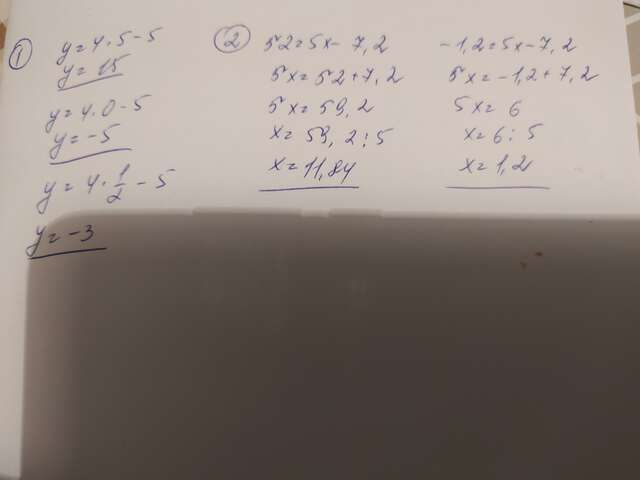 ①
y=4·5-5
y=15
y=4·0-5
y=-5
y=4·1/2-5
y=-3
②
52=5x-7,2
5x=52+7,2
5x=59,2
x=59,2:5
x=11,84
-1,2=5x-7,2
5x=-1,2+7,2
5x=6
x=6:5
x=1,2